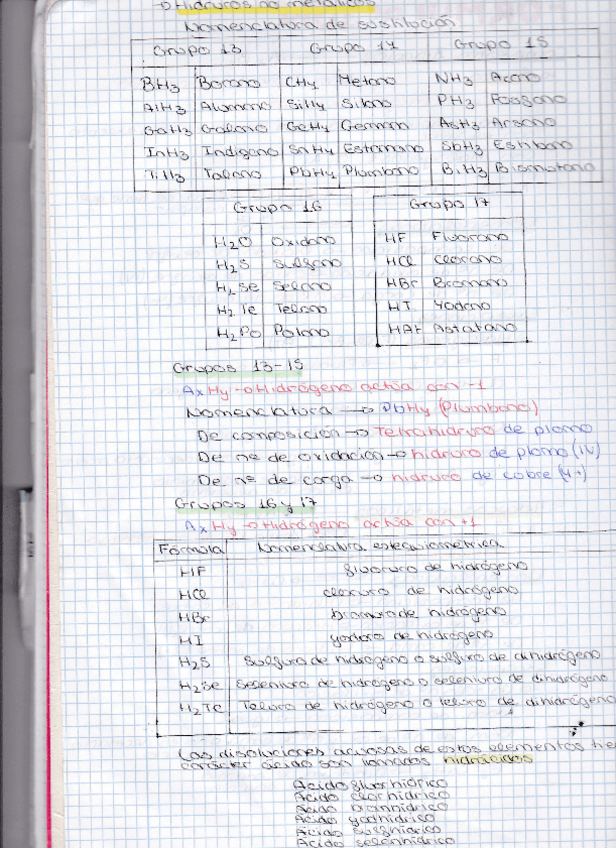 Hidruros no metálicos
Nomenclatura de sustitución
Grupo 13 Grupo 14 Grupo 15
BH3 Borano CH4 Metano NH3 Azano
AlH3 Alumano SiH4 Silano PH3 Fosfano
GaH3 Galano GeH4 Germano AsH3 Arsano
InH3 Indigano SnH4 Estannano SbH3 Estibano
TlH3 Talano PbH4 Plumbano BiH3 Bismutano
Grupo 16 Grupo 17
H2O Oxidano HF Fluorano
H2S Sulfano HCl Clorano
H2Se Selano HBr Bromano
H2Te Telano HI Yodano
H2Po Polano HAt Astatano
Grupos 13-15
AxHy → Hidrógeno actúa con -1
Nomenclatura → PbH4 (Plumbano)
De composición → Tetrahidruro de plomo
De nº de oxidación → hidruro de plomo (IV)
De nº de carga → hidruro de cobre (4+)
Grupos 16 y 17
AxHy → Hidrógeno actúa con +1
Fórmula Nomenclatura estequiométrica
HF fluoruro de hidrógeno
HCl cloruro de hidrógeno
HBr bromuro de hidrógeno
HI yoduro de hidrógeno
H2S Sulfuro de hidrógeno o sulfuro de dihidrógeno
H2Se Seleniuro de hidrógeno o seleniuro de dihidrógeno
H2Te Teluro de hidrógeno o teluro de dihidrógeno
Las disoluciones acuosas de estos elementos tie
carácter ácido son llamados hidrácidos
Ácido fluorhídrico
Ácido clorhídrico
Ácido bromhídrico
Ácido yodhídrico
Ácido sulfhídrico
Ácido selenhídrico